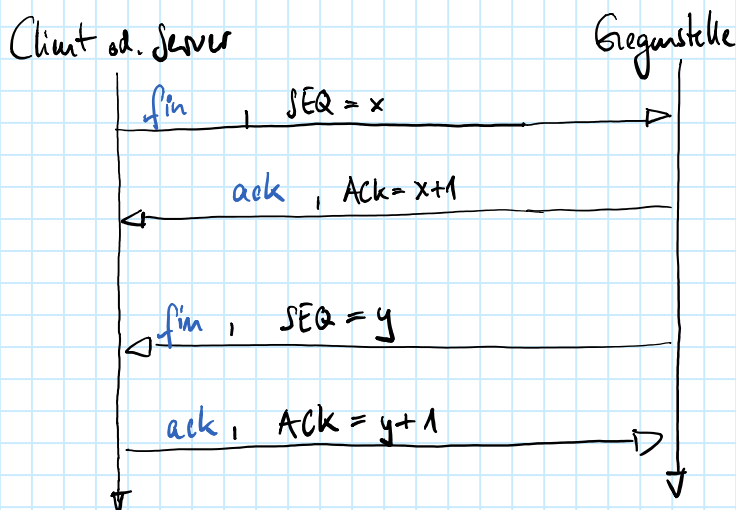 Client od. Server Gegenstelle
fin , SEQ = x
ack , ACK = x+1
fin , SEQ = y
ack , ACK = y+1